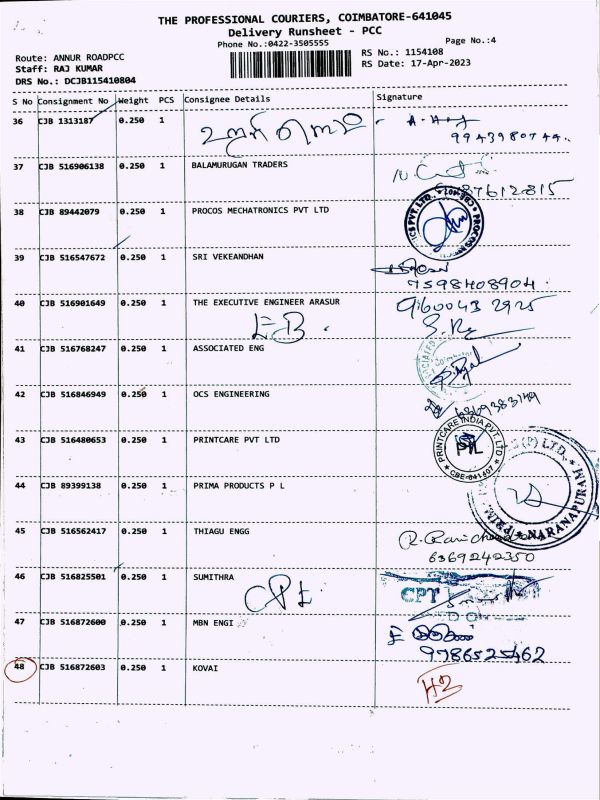 THE PROFESSIONAL COURIERS, COIMBATORE-641045
Delivery Runsheet - PCC
Phone No.:0422-3505555
Page No.:4
Route: ANNUR ROADPCC
RS No.: 1154108
Staff: RAJ KUMAR
RS Date: 17-Apr-2023
DRS No.: DCJB115410804
S No Consignment No Weight PCS Consignee Details Signature
36 CJB 1313187 0.250 1
37 CJB 516906138 0.250 1 BALAMURUGAN TRADERS
38 CJB 89442079 0.250 1 PROCOS MECHATRONICS PVT LTD
39 CJB 516547672 0.250 1 SRI VEKEANDHAN
7598408904
40 CJB 516901649 0.250 1 THE EXECUTIVE ENGINEER ARASUR
EB
9160043 2925
41 CJB 516768247 0.250 1 ASSOCIATED ENG
42 CJB 516846949 0.250 1 OCS ENGINEERING
43 CJB 516480653 0.250 1 PRINTCARE PVT LTD
PRINTCARE INDIA PVT. LTD
PIL
CBE-641407
44 CJB 89399138 0.250 1 PRIMA PRODUCTS P L
NARANAPURAM
45 CJB 516562417 0.250 1 THIAGU ENGG
6369242350
46 CJB 516825501 0.250 1 SUMITHRA
CPT
47 CJB 516872600 0.250 1 MBN ENGI
9786525462
48 CJB 516872603 0.250 1 KOVAI